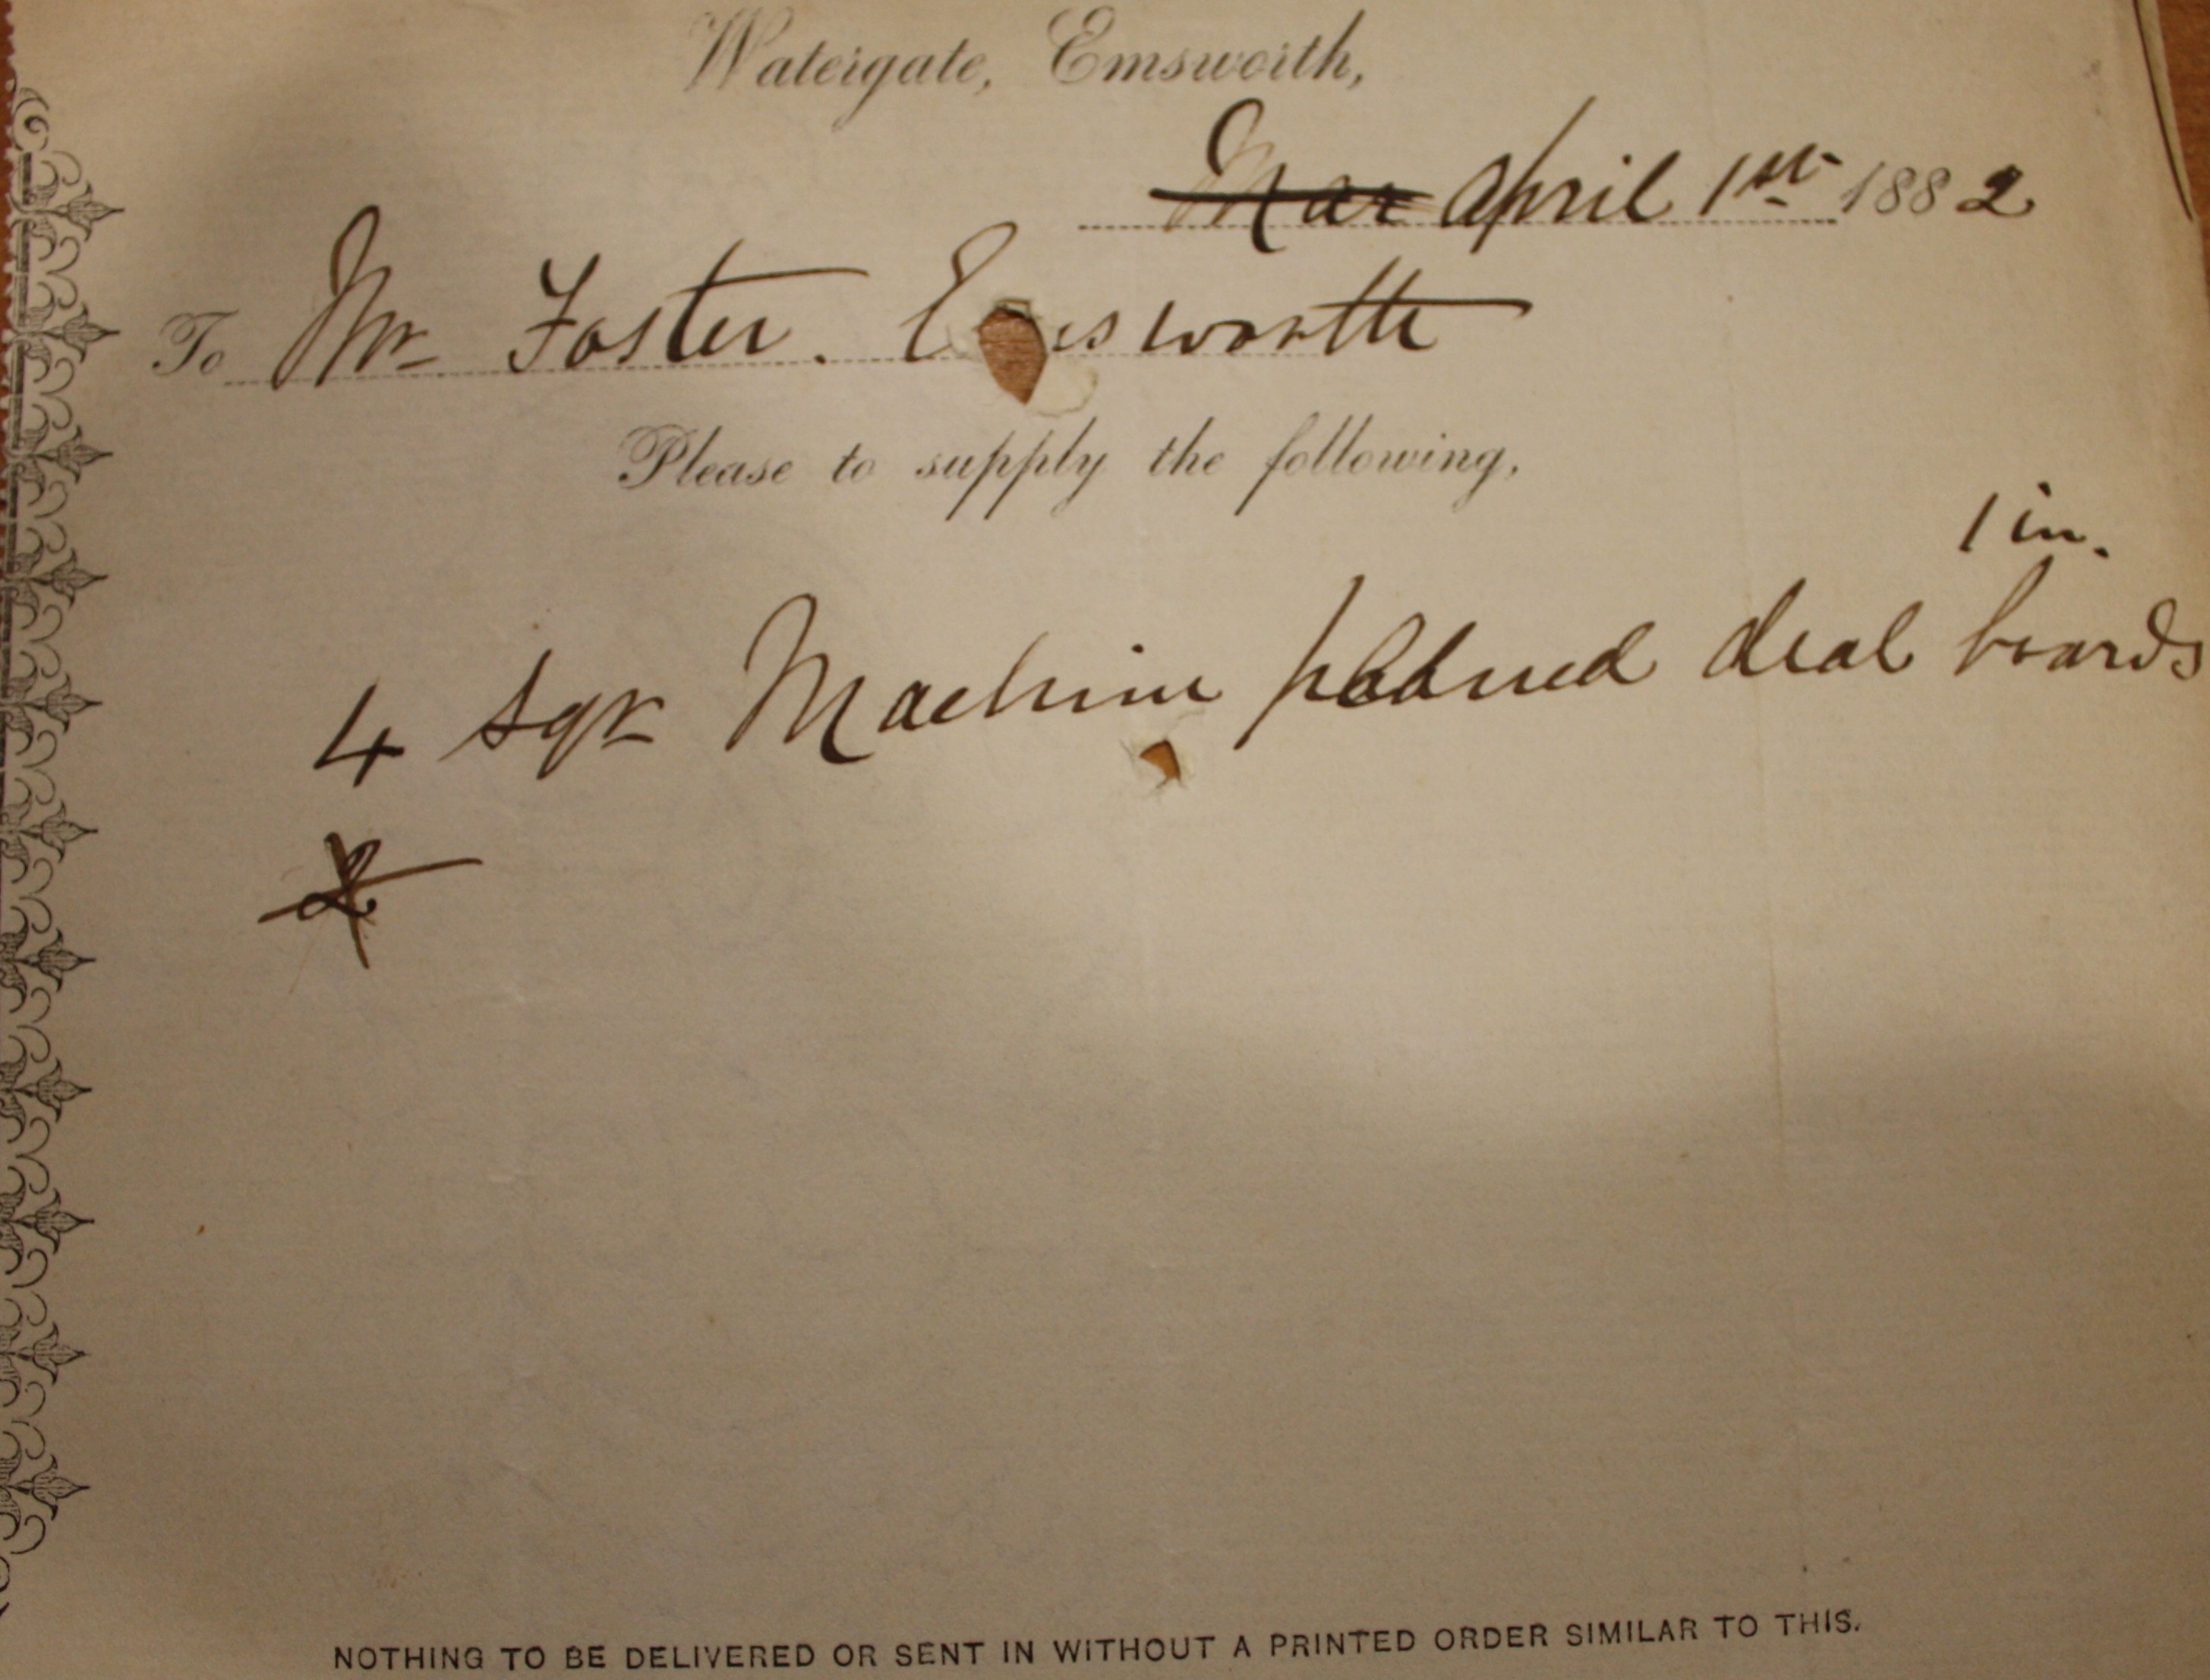 Watergate, Emsworth,
Mar April 1st 1882
To Mr Foster. Emsworth
Please to supply the following,
1 in.
4 sqr Machine planed deal boards
2
NOTHING TO BE DELIVERED OR SENT IN WITHOUT A PRINTED ORDER SIMILAR TO THIS.